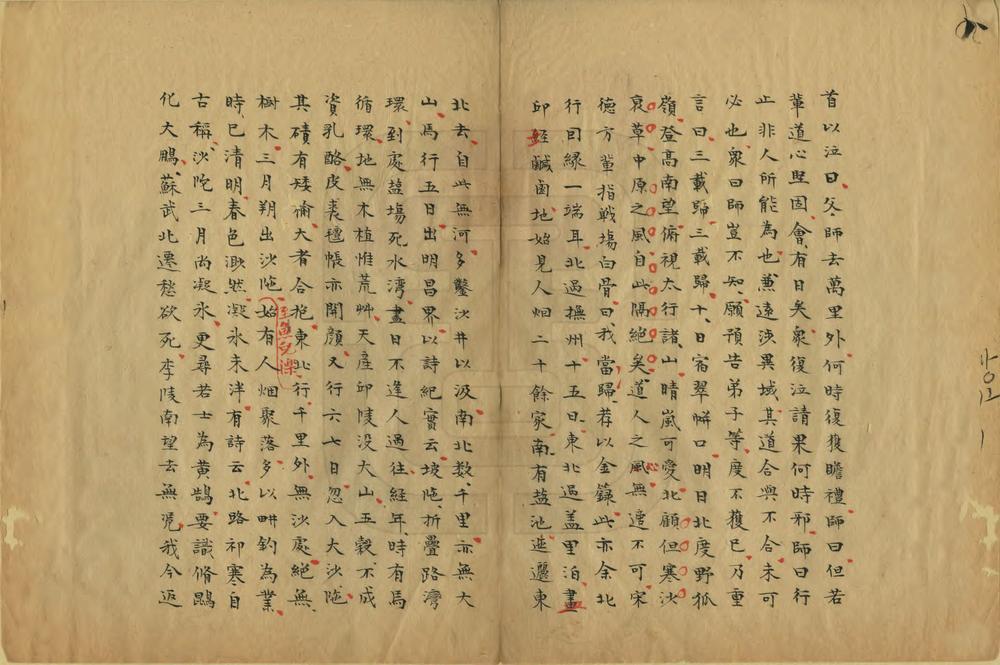 首以泣曰父師去萬里外何時復獲瞻禮師曰但若
輩道心堅固會有日矣衆復泣請果何時邪師曰行
止非人所能為也兼遠涉異域其道合與不合未可
必也衆曰師豈不知願預告弟子等度不獲已乃重
言曰三載歸三載歸十日宿翠帡口明日北度野狐
嶺登高南望俯視太行諸山晴嵐可愛北顧但寒沙
衰草中原之風自此隔絕矣道人之風心無適不可宋
德方輩指戰場白骨曰我當歸荐以金籙此亦余北
行回緣一端耳北過撫州十五日東北過盖里泊盡
邱垤鹹鹵地始見人烟二十餘家南有盐池迤邐東
北去自此無河多鑿沙井以汲南北数千里亦無大
山馬行五日出明昌界以詩紀實云坡陁折疊路灣
環到處盐場死水灣盡日不逢人過往經年時有馬
循環地無木植惟荒艸天産邱陵没大山五穀不成
資乳酪皮裘氊帳亦開顔又行六七日忽入大沙陁
其磧有矮榆大者合抱東北行千里外無沙處絕無
樹木三月朔出沙陁至魚兒濼始有人烟聚落多以畊釣為業
時已清明春色渺然凝氷未泮有詩云北路祁寒自
古稱沙陀三月尚凝氷更尋若士為黄鵠要識脩鵾
化大鵬蘇武北遷愁欲死李陵南望去無凭我今返